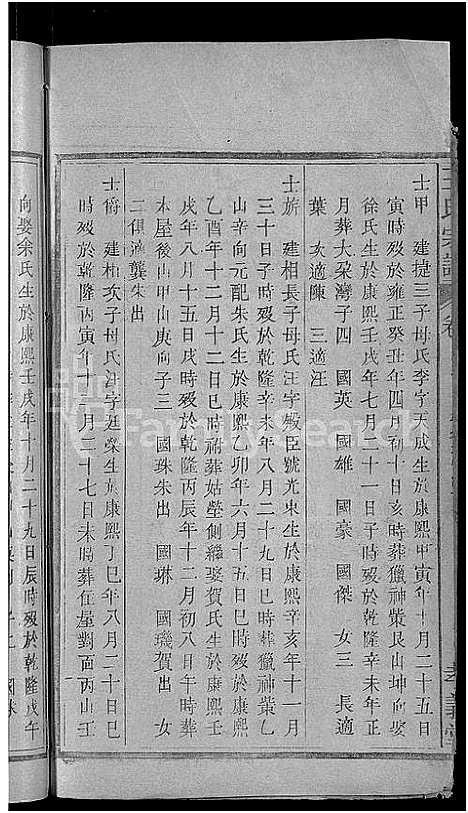 王氏宗譜
卷
士甲 建提三子母氏李字天成生於康熙甲寅年十月二十五日
寅時歿於雍正癸丑年四月初十日亥時葬獵神策艮山坤向娶
徐氏生於康熙壬戌年七月二十一日子時歿於乾隆辛未年正
月葬大梁灣子四 國英 國雄 國豪 國傑 女三 長適
葉 次適陳 三適汪
士旂 建相長子母氏汪字殿臣號光東生於康熙辛亥年十一月
三十日子時歿於乾隆辛酉年二月二十九日巳時葬獵神叢乙
山辛向元配朱氏生於康熙乙卯年六月十五日巳時歿於康熙
乙酉年十二月十二日子時祔葬姑塋側繼娶賀氏生於康熙壬
戌年八月十五日戌時歿於乾隆丙辰年十二月初八日午時葬
本屋後山甲山庚向子三 國珠朱出 國琳 國璣賀出 女
二俱適龔朱出
士爵 建相次子母氏汪字廷榮生於康熙丁巳年八月二十日巳
時歿於乾隆丙寅年十一月二十七日未時葬住屋對面丙山壬
向娶余氏生於康熙壬戌年十月二十九日辰時歿於乾隆戊午
FamilySearch